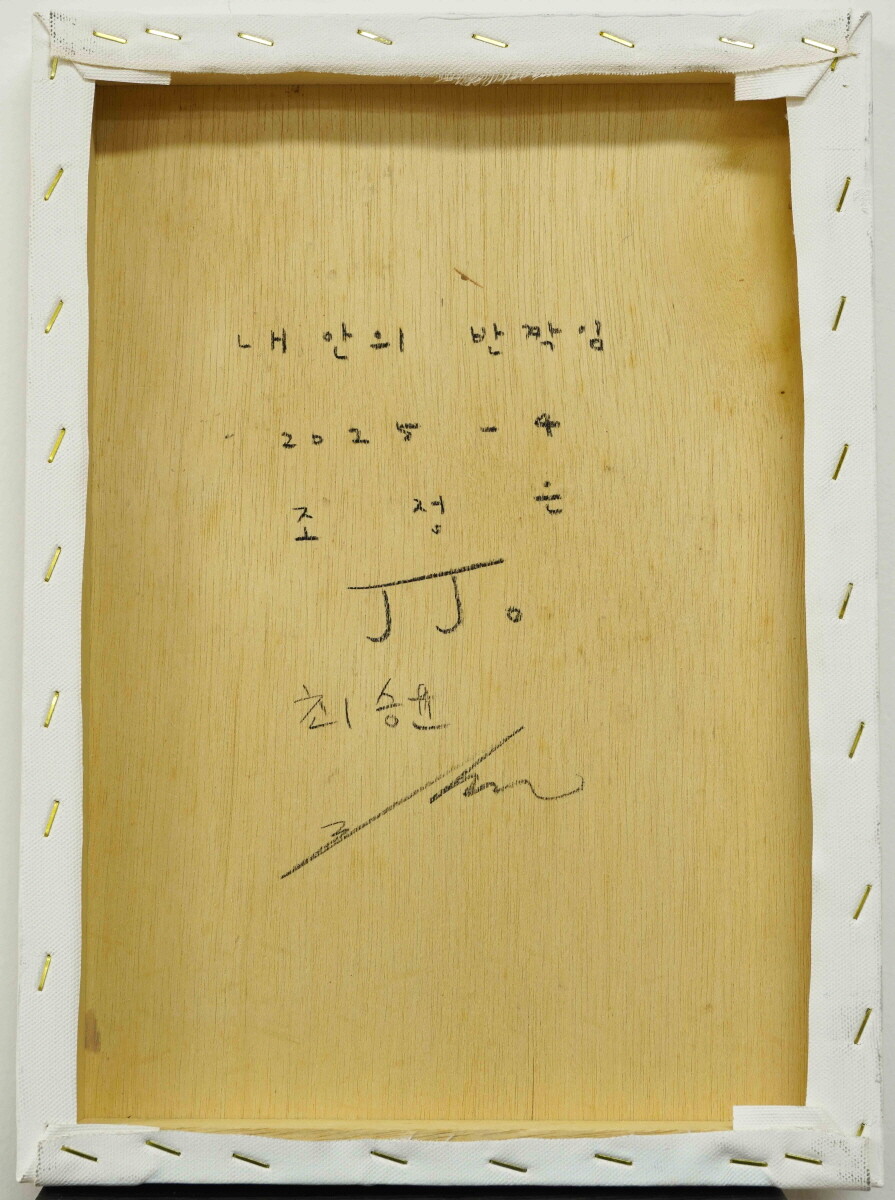 내 안의 반짝임
2025-4
조정은
JJ.
최승윤